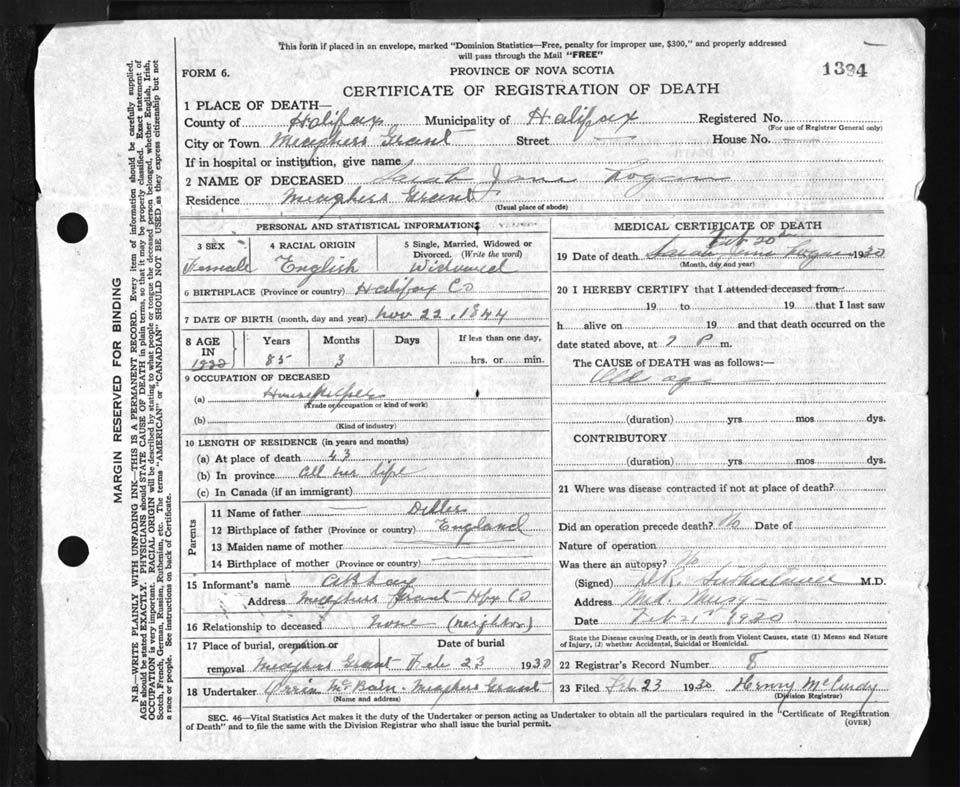 This form if placed in an envelope, marked "Dominion Statistics—Free, penalty for improper use, $300," and properly addressed
will pass through the Mail "FREE"
FORM 6.
PROVINCE OF NOVA SCOTIA
1394
CERTIFICATE OF REGISTRATION OF DEATH
1 PLACE OF DEATH—
County of Halifax Municipality of Halifax Registered No.
(For use of Registrar General only)
City or Town Meaghers Grant Street House No.
If in hospital or institution, give name
2 NAME OF DECEASED Sarah Jane Logan
Residence Meaghers Grant
(Usual place of abode)
PERSONAL AND STATISTICAL INFORMATION
3 SEX 4 RACIAL ORIGIN 5 Single, Married, Widowed or Divorced. (Write the word)
Female English Widowed
6 BIRTHPLACE (Province or country) Halifax Co
7 DATE OF BIRTH (month, day and year) Nov 22, 1844
8 AGE IN Years Months Days If less than one day,
1930 85 3 hrs. or min.
9 OCCUPATION OF DECEASED
(a) Housekeeper
(Trade or occupation or kind of work)
(b)
(Kind of industry)
10 LENGTH OF RESIDENCE (in years and months)
(a) At place of death 43
(b) In province all her life
(c) In Canada (if an immigrant)
Parents
11 Name of father — Dibler
12 Birthplace of father (Province or country) England
13 Maiden name of mother
14 Birthplace of Mother (Province or country)
15 Informant's name
Address Meaghers Grant Hfx Co
16 Relationship to deceased None (neighbor)
17 Place of burial, cremation or removal Meaghers Grant Date of burial Feb 23 1930
18 Undertaker Orrin McBain - Meaghers Grant
(Name and address)
MEDICAL CERTIFICATE OF DEATH
Feb 20th
19 Date of death Sarah Jane Logan 1930
(Month, day and year)
20 I HEREBY CERTIFY that I attended deceased from
19 to 19 that I last saw
h alive on 19 and that death occurred on the
date stated above, at 7 P m.
The CAUSE of DEATH was as follows:—
Old age
(duration) yrs mos dys.
CONTRIBUTORY
(duration) yrs mos dys.
21 Where was disease contracted if not at place of death?
Did an operation precede death? No Date of
Nature of operation
Was there an autopsy? No
(Signed) Sutherland M.D.
Address Mid. Musq
Date Feb 21st 1930
State the Disease causing Death, or in death from Violent Causes, state (1) Means and Nature of Injury, (2) whether Accidental, Suicidal or Homicidal.
22 Registrar's Record Number 8
23 Filed Feb 23 1930 Henry McCurdy
(Division Registrar)
SEC. 46—Vital Statistics Act makes it the duty of the Undertaker or person acting as Undertaker to obtain all the particulars required in the "Certificate of Registration
of Death" and to file the same with the Division Registrar who shall issue the burial permit.
(OVER)
MARGIN RESERVED FOR BINDING
N.B.—WRITE PLAINLY WITH UNFADING INK—THIS IS A PERMANENT RECORD. Every item of information should be carefully supplied.
AGE should be stated EXACTLY. PHYSICIANS should STATE CAUSE OF DEATH in plain terms, so that it may be properly classified. Exact statement of
OCCUPATION is very important. RACIAL ORIGIN will be described by stating to what people or tongue the deceased person belonged, whether English, Irish,
Scotch, French, German, Russian, Ruthenian, etc. The terms "AMERICAN" or "CANADIAN" SHOULD NOT BE USED as they express citizenship but not
a race or people. See instructions on back of Certificate.